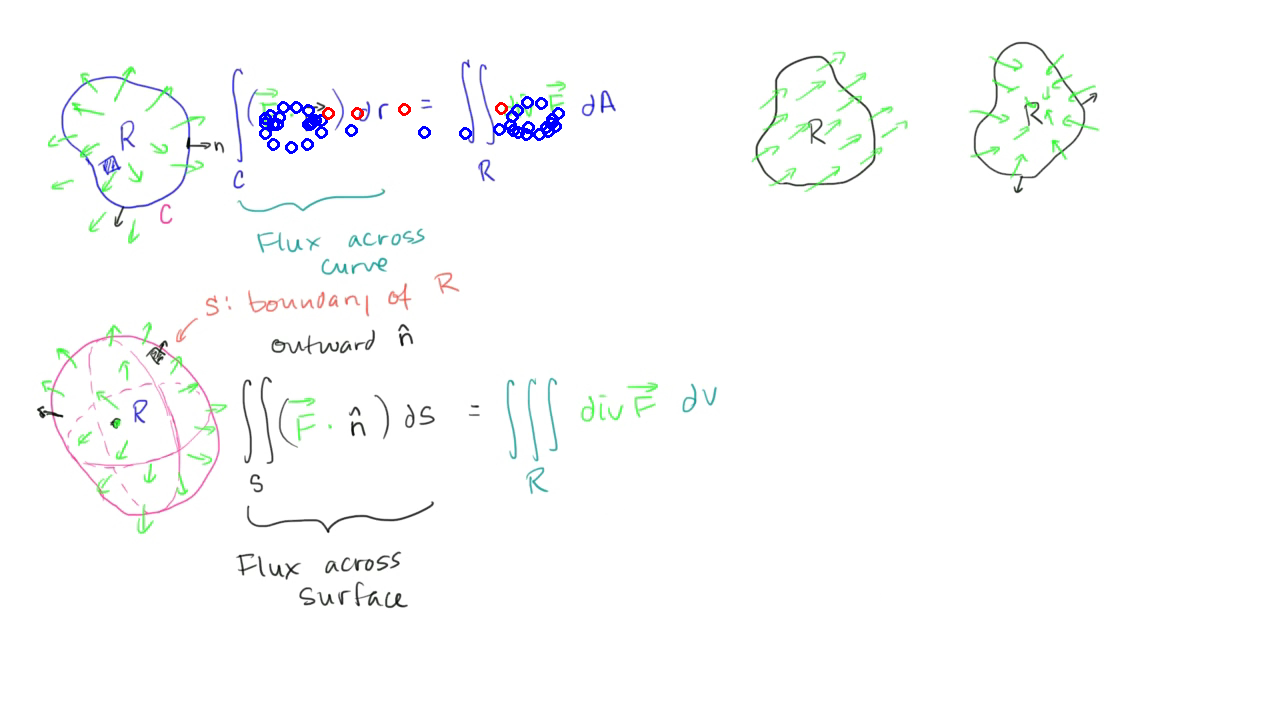 R
n
C
∫ ( ) dr = ∫∫ dA
C
R
Flux across
curve
R
R
S: boundary of R
outward n̂
R
∬(F⃗ · n̂) ds = ∭ div F⃗ dv
S
R
Flux across
surface